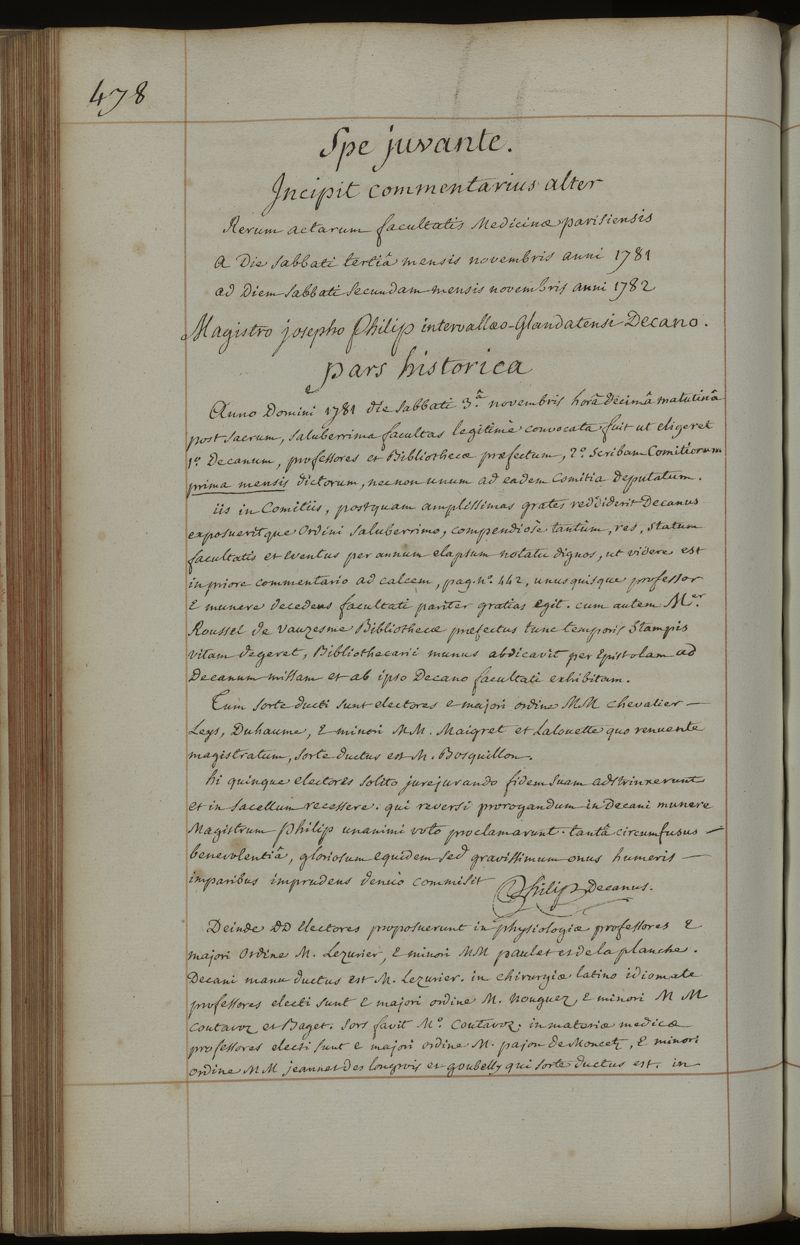 478
Spe juvante.
Incipit commentarius alter
Rerum actarum facultatis Medicinæ parisiensis
A Die sabbati tertiâ mensis novembris anni 1781
ad Diem sabbati secundam mensis novembris anni 1782
Magistro josepho Philip intervallæo-Glandatensi Decano.
pars historica
Anno Domini 1781 die sabbati 3.ª novembris horâ decimâ matutinâ
post sacrum, saluberrima facultas legitimè convocata fuit ut eligeret
1º. Decanum, professores et Bibliothecæ præfectum, 2º. Scribam Comitiorum
prima mensis dictorum, necnon unum ad eadem Comitia deputatum.
iis in Comitiis, postquam amplissimas grates reddiderit Decanus
exposueritque Ordini saluberrimo, compendiosè tantùm, res, statum
facultatis et eventus per annum elapsum notatu dignos, ut videre est
in priore commentario ad calcem, pag. nº. 442, unusquisque professor
è munere decedens facultati pariter gratias egit. cum autem M.er
Roussel de Vauzesme Bibliothecæ præfectus tunc temporis Stampis
vitam degeret, Bibliothecarii munus abdicavit per Epistolam ad
Decanum missam et ab ipso Decano facultati exhibitam.
Tum sorte ducti sunt electores e majori ordine MM chevalier —
Leys, Duhaume, è minori MM. Maigret et Lalouette quo renuente
magistratum, sorte ductus est M. Bosquillon.
hi quinque electores solito jurejurando fidem suam adstrinxerunt
et in sacellum recessere. qui reversi prorogandum in Decani munere
Magistrum philip unanimi voto proclamarunt. tantâ circumfusus —
benevolentiâ, gloriosum equidem sed gravissimum onus humeris —
imparibus imprudens denuò commisit Philip Decanus.
Deinde DD Electores proposuerunt in physiologiæ professores è
majori Ordine M. Lezurier, è minori MM paulet et de la planche.
Decani manu ductus est M. Lezurier. in chirurgiæ latino idiomate
professores electi sunt è majori ordine M. Nouguez, è minori M M
Coutavoz et Baget. Sors favit Mº. Coutavoz; in materiæ medicæ
professores electi sunt e majori ordine M. pajon de Moncetz, è minori
ordine MM jeannet des longrois et goubelly qui sorte ductus est. in